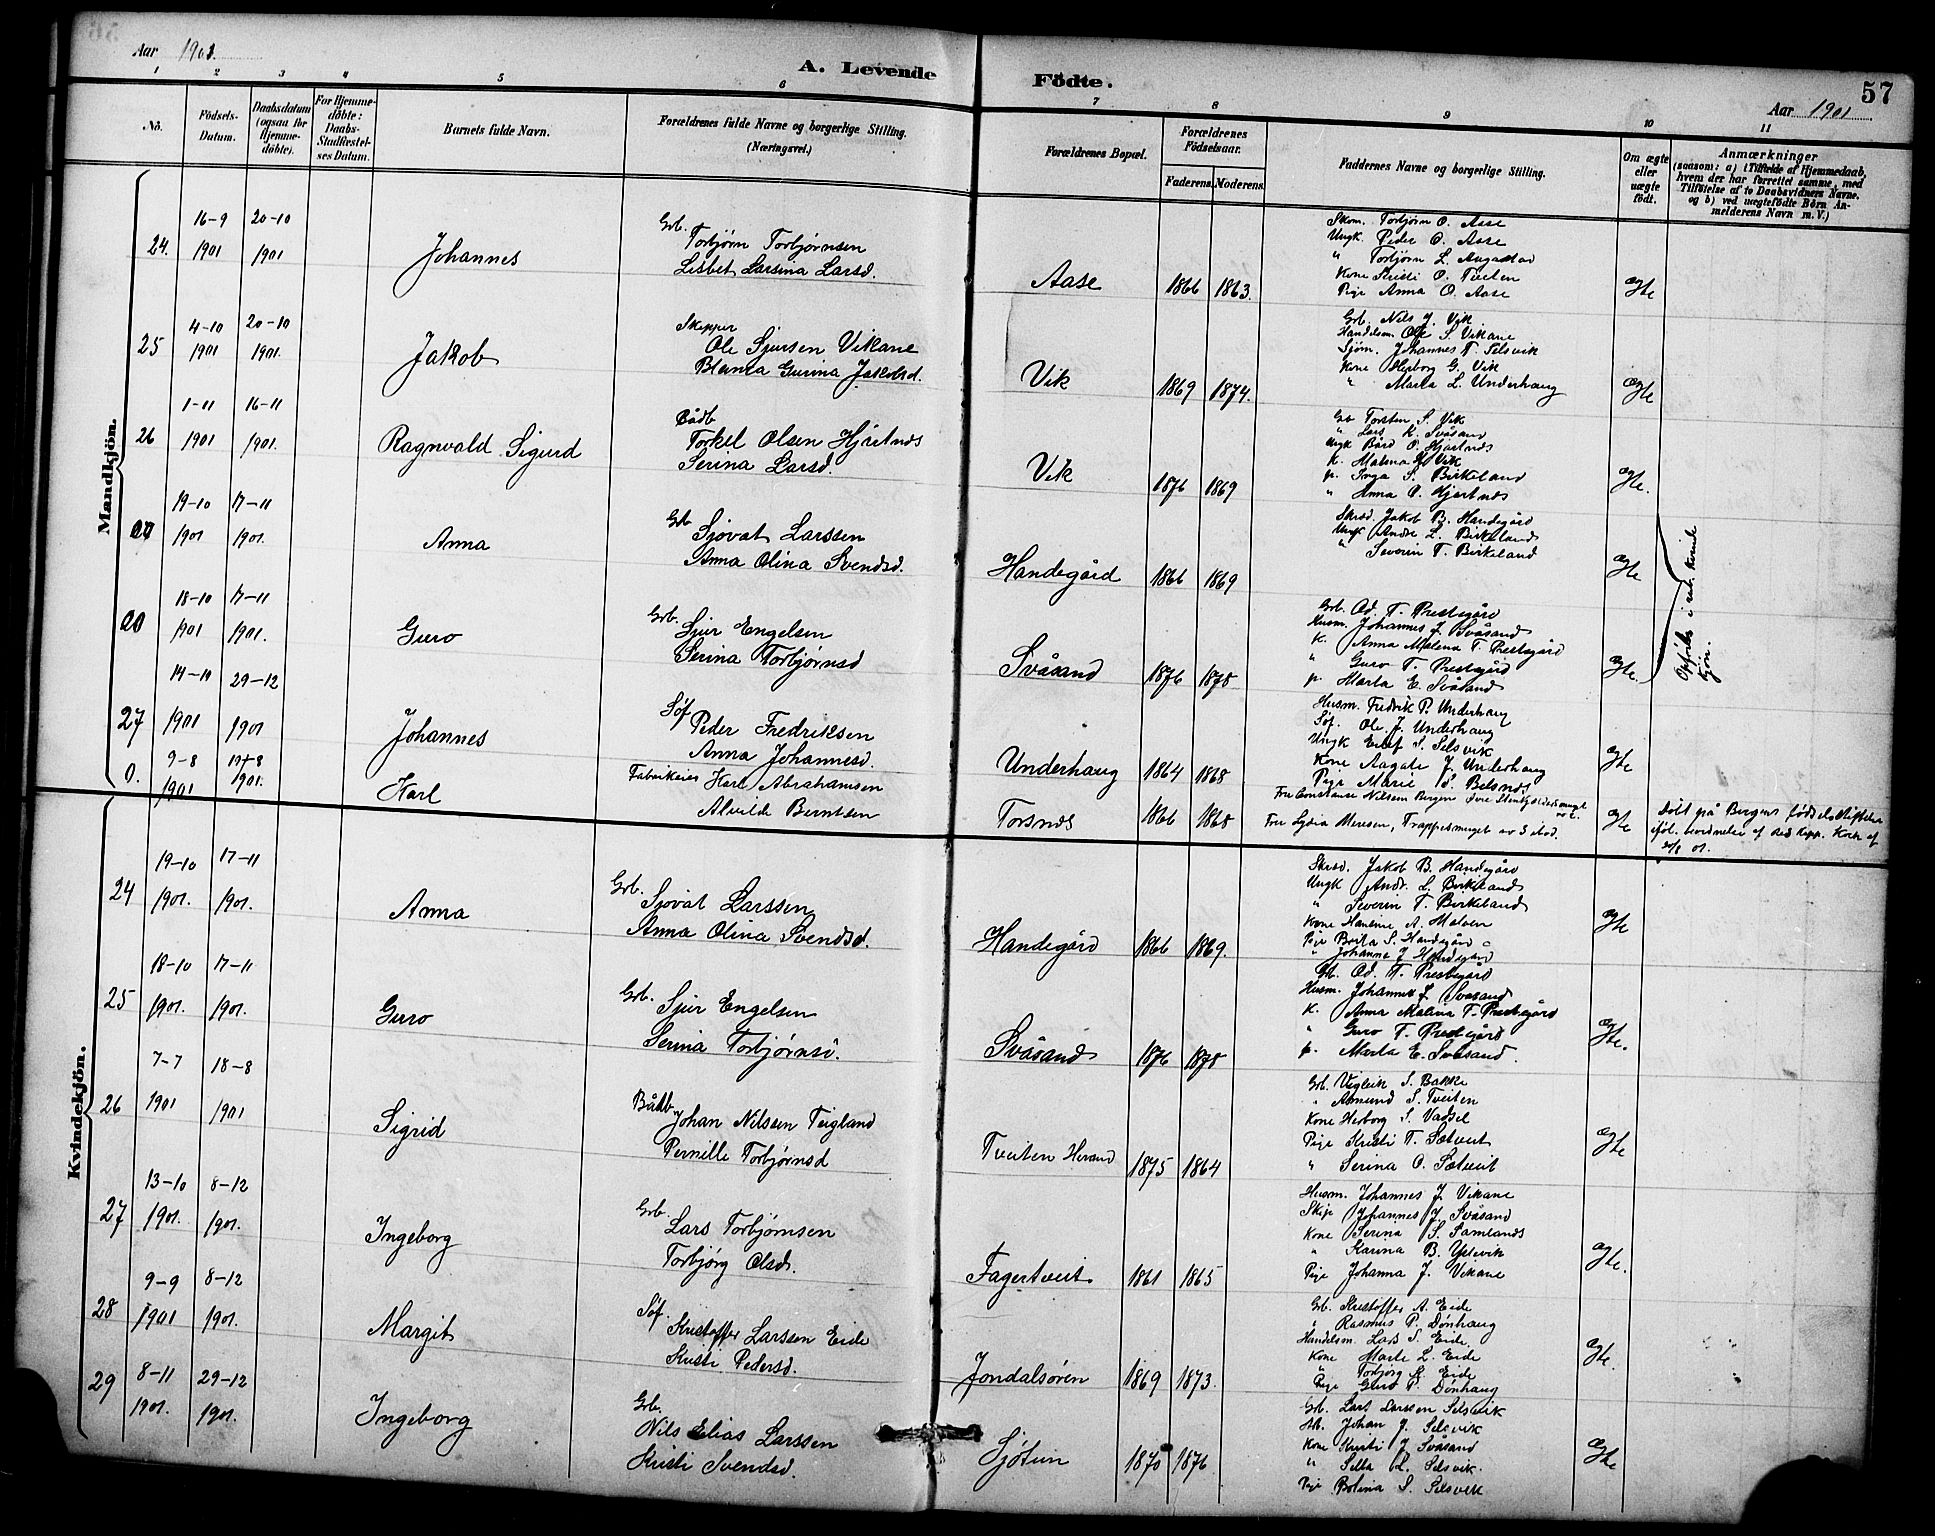 57
Aar 1901.
A. Levende Födte.
Aar 1901
1 2 3 4 5 6 7 8 9 10 11
No.
Födsels-Datum.
Daabsdatum (ogsaa for Hjemme-döbte).
For Hjemme-döbte: Daabs-Stadfæstel-ses Datum.
Barnets fulde Navn.
Forældrenes fulde Navne og borgerlige Stilling. (Næringsvei.)
Forældrenes Bopæl.
Forældrenes Födselsaar.
Faderens. Moderens.
Faddernes Navne og borgerlige Stilling.
Om ægte eller uægte födt.
Anmærkninger
(saasom: a) i Tilfælde af Hjemmedaab, hvem der har forrettet samme, med Tilföielse af to Daabsvidners Navne. og b) ved uægtefödte Börn An-melderens Navn m. V.)
Mandkjön.
24. 16-9 1901 20-10 1901 Johannes
Grb. Torbjørn Torbjørnsen
Lisbet Larsina Larsd.
Aase 1866 1863.
Skom. Torbjørn O. Aase
Ungk. Peder O. Aase
" Torbjørn L. Augastad
Kone Kristi O. Tveiten
Pige Anna O. Aase
Ægte
25 4-10 1901 20-10 1901. Jakob
Skipper Ole Sjursen Vikane
Gurina Jakobsd.
Vik 1869 1874.
Grb. Nils J. Vik
Handelsm. Ole S. Vikane
Sjøm. Johannes T. Selsvik
Kone Herborg G. Vik
" Marta L. Underhaug
Ægte
26 1-11 1901 16-11 1901. Ragnvald Sigurd
Bådb Torkel Olsen Hjertnes
Serina Larsd.
Vik 1876 1869
Grb Torsten S. Vik
" Lars K. Svåsand
Ungk Bård O. Hjertnes
K. Malena Vik
p. Inga S. Birkeland
" Anna O. Hjertnes
Ægte.
19-10 1901 17-11 1901. Anna
Grb Sjovat Larssen
Anna Olina Svendsd.
Handegård 1866 1869
Skræd. Jakob B. Handegård
Ungk Andr. L. Birkeland
" Severin T. Birkeland
Ægte
18-10 1901 17-11 1901. Guro
Grb. Sjur Engelsen
Serina Torbjørnsd
Svåsand 1876 1878
Grb. Od. T. Prestegård
Husm. Johannes J. Svåsand
K. Anna Malena T. Prestegård
" Guro T. Prestegård
p. Marta E. Svåsand
Ægte.
Opført i ret. Kvinde kjøn.
27 14-10 1901 29-12 1901 Johannes
Søf. Peder Fredriksen
Anna Johannesd.
Underhaug 1864 1868
Husm. Fredrik P. Underhaug
Søf. Ole J. Underhaug
Ungk Elef S. Selsvik
Kone Aagate J. Underhaug
Pige Marie S. Belsnes
Ægte
0. 9-8 1901 1901. Karl
Fabrikeier Karl Abrahamsen
Alvilde Berntsen
Torsnes 1866 1868
Fru Constanse Nilsen Bergen
Fru Lydia Meresen, Trappesmuget
Ægte
Døbt på Bergens fødselsstiftelse
Kvindekjön.
24 19-10 1901. 17-11 1901. Anna
Grb. Sjovat Larssen
Anna Olina Svendsd.
Handegård 1866 1869.
Skræd. Jakob B. Handegård
Ungk Andr. L. Birkeland
" Severin T. Birkeland
Kone Hanene A. Melven
Pige Brita S. Handegård
" Johanna J Handegård
Ægte
25 18-10 1901. 17-11 1901. Guro
Grb. Sjur Engelsen
Serina Torbjørnsd.
Svåsand 1876 1878
Grb. Od. T. Prestegård
Husm. Johannes J. Svåsand
K. Anna Malina T. Prestegård
" Guro T. Prestegård
p. Marta E. Svåsand.
Ægte.
26 7-7 1901 18-8 1901 Sigrid
Båtb Johan Nilssen Teigland
Pernille Torbjørnsd
Tveiten Herand 1875 1864
Grb. Vigleik S. Bakke
" Asmund S. Tveiten
Kone Herborg S. Vadsel
Pige Kristi T. Sætveit
" Serina O. Sætveit
Ægte
27 13-10 1901. 8-12 1901. Ingeborg
Grb. Lars Torbjørnsen
Torbjørg Olsd.
Fagertveit 1861 1865
Husm. Johannes J. Vikane
Skip. Johannes J. Svåsand
Kone Serina S. Samlands
" Karina B. Yslevik
Pige Johanna J. Vikane
Ægte.
28 9-9 1901 8-12 1901. Margit
Søf. Kristoffer Larssen Eide
Kristi Pedersd.
Jondalsøren 1869 1873.
Grb. Kristoffer A. Eide
" Rasmus P. Dønhaug
Handelsm. Lars S. Eide
Kone Marta L. Eide
" Torbjørg K. Eide
Pige Guro P. Dønhaug
Ægte.
29 8-11 1901. 29-12 1901. Ingeborg
Grb. Nils Elias Larssen
Kristi Svendsd.
Sjøtun 1870 1876
Grb. Lars Larssen Selsvik
Johan J. Selsvik
Kone Kristi J Svåsand
" Silla L. Selsvik.
Pige Bolina S. Selsvik
Ægte